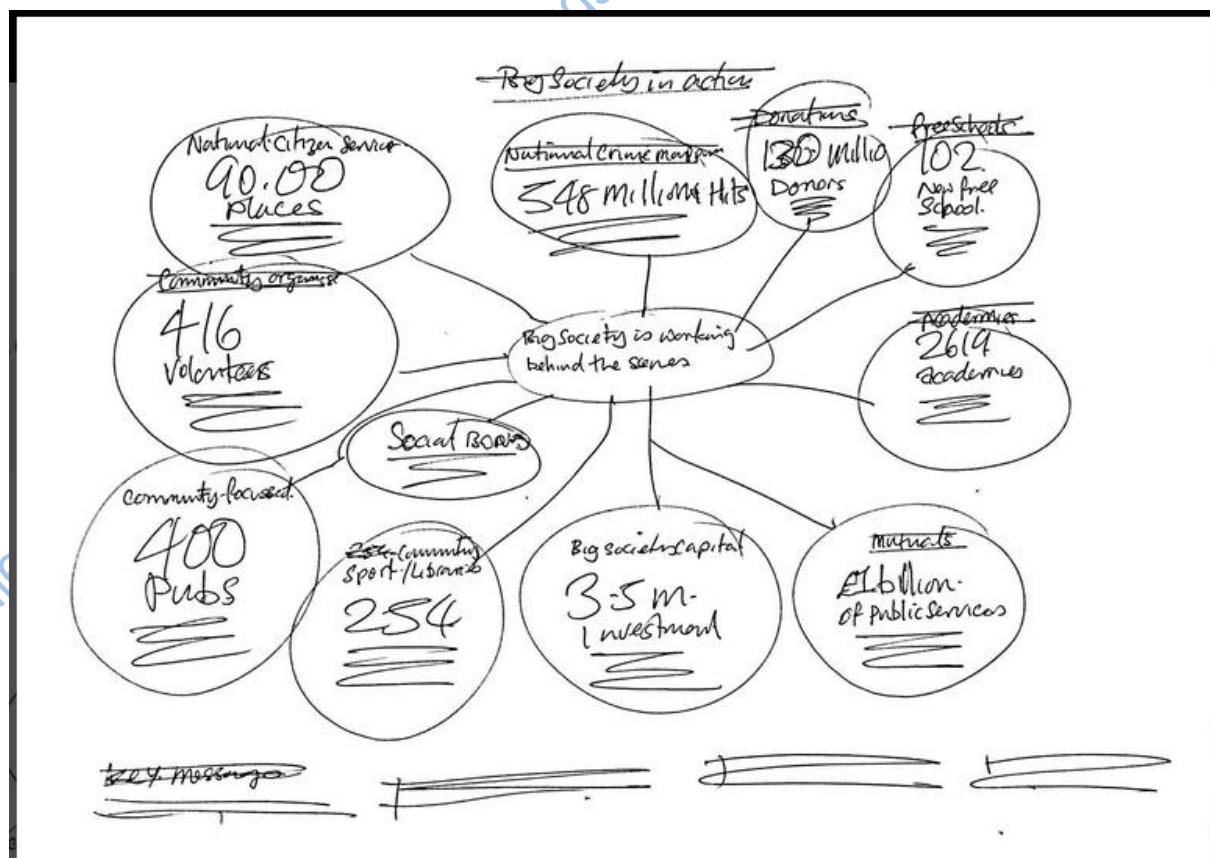 Big Society in action
National Citizen Service
90.00
places
National Crime mapping
548 millions Hits
Donations
130 millio
Donors
Free Schools
102
New free
School.
Community organise
416
Volunteers
Big Society is working
behind the scenes
Academies
2619
academies
Social
Community-focussed.
400
Pubs
Community
Sport/Libraries
254
Big society capital
3-5 m.
Investment
Mutuals
£1 billion.
of public services
key message